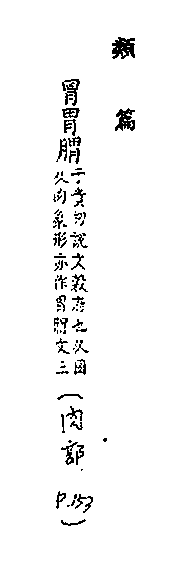 類篇
胃胃腪于貴切說文穀府也从𡇒
从肉象形亦作胃腪文三
(肉部 P.153)